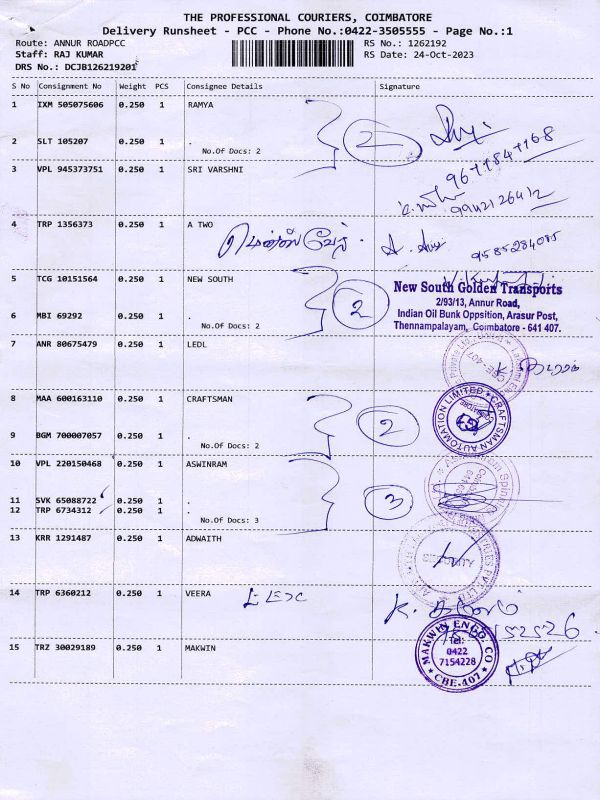 THE PROFESSIONAL COURIERS, COIMBATORE
Delivery Runsheet - PCC - Phone No.:0422-3505555 - Page No.:1
Route: ANNUR ROADPCC RS No.: 1262192
Staff: RAJ KUMAR RS Date: 24-Oct-2023
DRS No.: DCJB126219201
S No Consignment No Weight PCS Consignee Details Signature
1 IXM 505075606 0.250 1 RAMYA
2 SLT 105207 0.250 1 . 2
No.Of Docs: 2
3 VPL 945373751 0.250 1 SRI VARSHNI
9942126412
4 TRP 1356373 0.250 1 A TWO
9585284085
5 TCG 10151564 0.250 1 NEW SOUTH
New South Golden Transports
2/93/13, Annur Road,
6 MBI 69292 0.250 1 . 2 Indian Oil Bunk Oppsition, Arasur Post,
No.Of Docs: 2 Thennampalayam, Coimbatore - 641 407.
7 ANR 80675479 0.250 1 LEDL
CBE-407
8 MAA 600163110 0.250 1 CRAFTSMAN
CRAFTSMAN AUTOMATION LIMITED
9 BGM 700007057 0.250 1 . 2
No.Of Docs: 2
10 VPL 220150468 0.250 1 ASWINRAM
11 SVK 65088722 0.250 1 . 3
12 TRP 6734312 0.250 1 .
No.Of Docs: 3
13 KRR 1291487 0.250 1 ADWAITH
14 TRP 6360212 0.250 1 VEERA
15 TRZ 30029189 0.250 1 MAKWIN
MAKWIN ENGG. CO
Tel:
0422
7154228
CBE-407